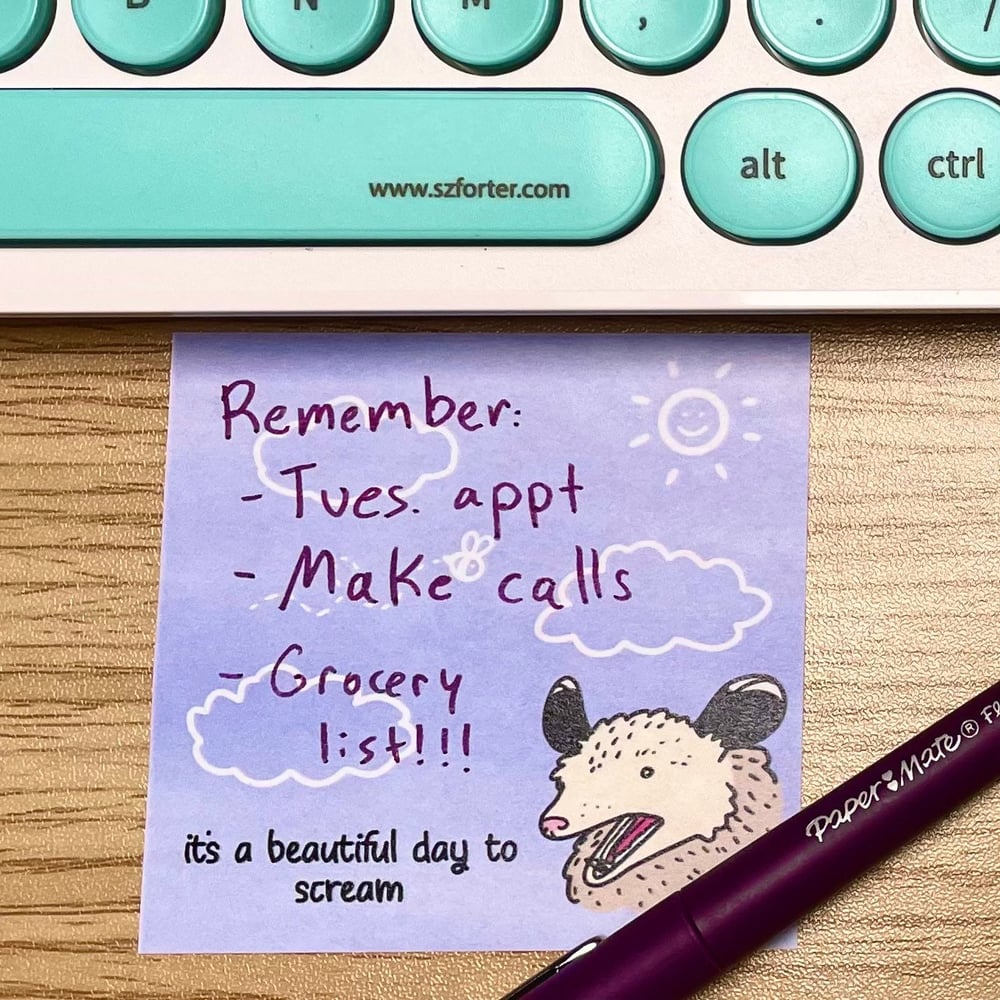 B N M , . /
www.szforter.com alt ctrl
Remember:
- Tues. appt
- Make calls
- Grocery
list!!!
it's a beautiful day to
scream
Paper Mate®